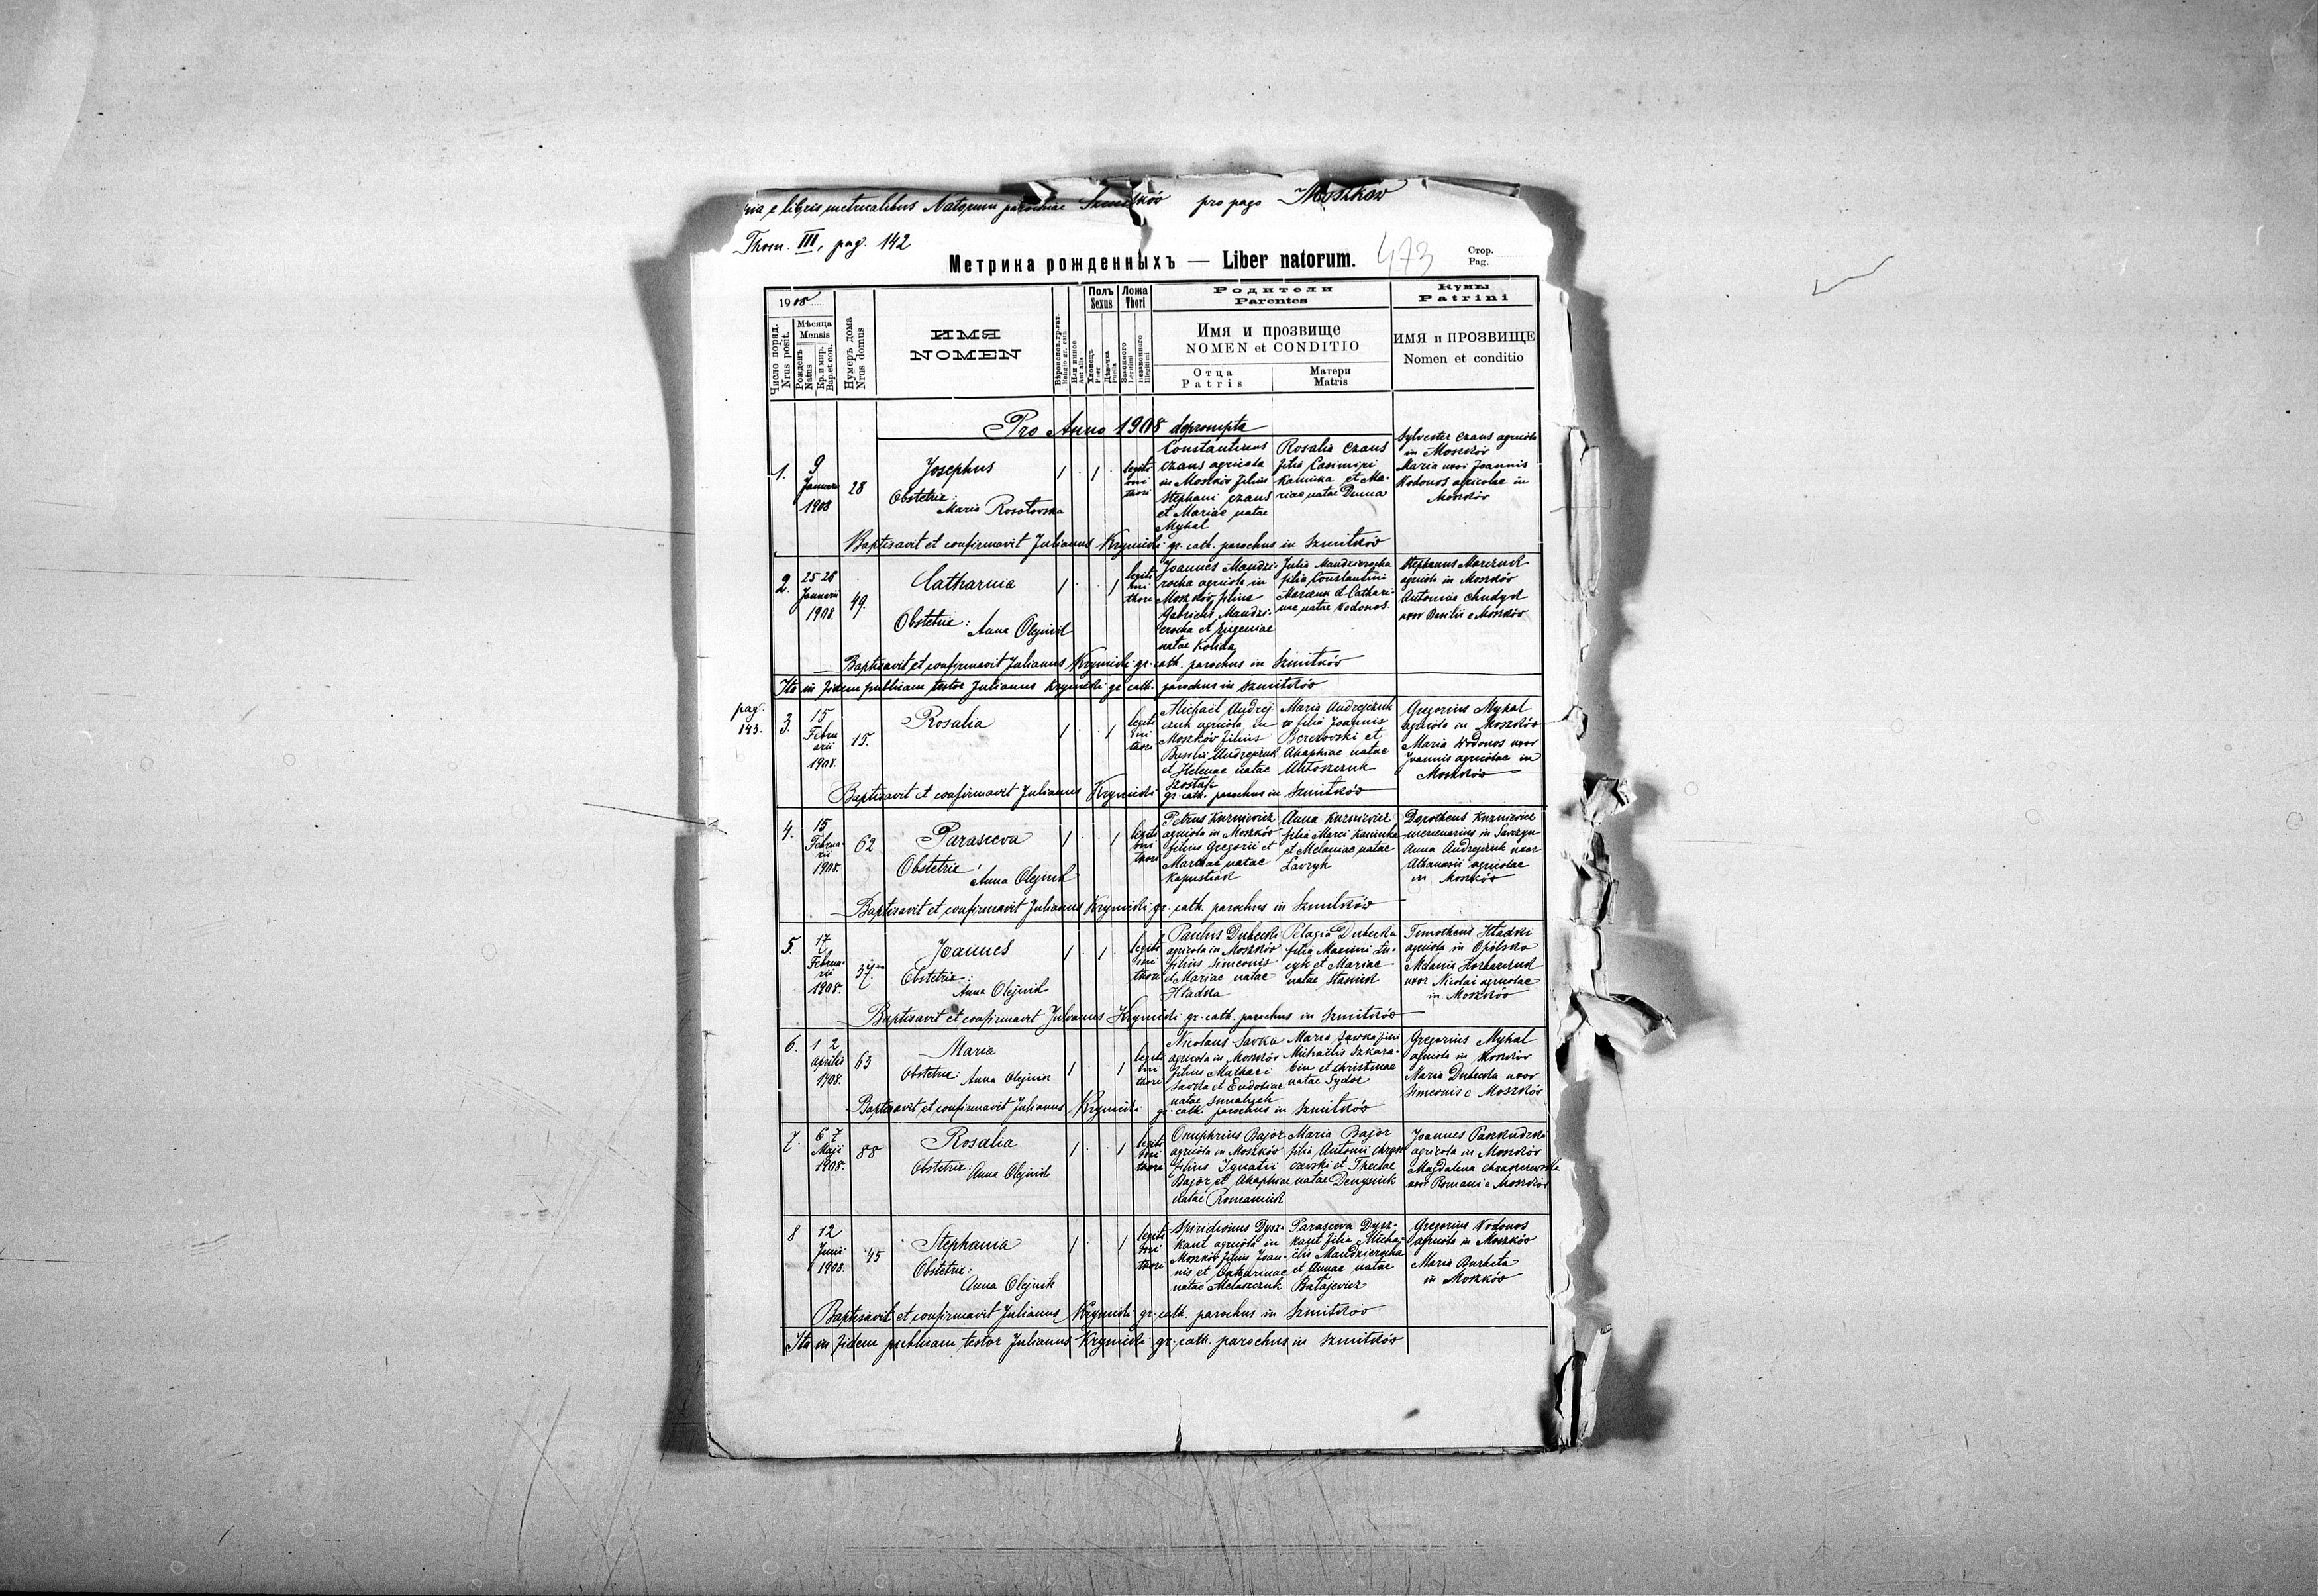 e libris metricalibus Natorum parochiae Szmitków pro pago Moszków
Thom. III, pag. 142
Метрика рожденныхъ — Liber natorum.
473
Стор.
Pag.
1908
Число поряд.
Nrus posit.
Мѣсяца
Mensis
Рожденъ
Natus
Кр. и мир.
Bap. et con.
Нумеръ дома
Nrus domus
ИМЯ
NOMEN
Полъ
Sexus
Хлопецъ
Puer
Дѣвочка
Puella
Ложа
Thori
Законного
Legitimi
незаконного
Illegitimi
Родители
Parentes
Имя и прозвище
NOMEN et CONDITIO
Отца
Patris
Матери
Matris
Кумы
Patrini
ИМЯ и ПРОЗВИЩЕ
Nomen et conditio
Pro Anno 1908 deprompta
1.
9
Januarii
1908
28
Josephus
Obstetrix:
Maria Rosołowska
1 1
legiti
mi
thori
Constantinus
Czaus agricola
in Moszków filius
Stephani Czaus
et Mariae natae
Mykal
Rosalia Czaus
filia Casimiri
Kaminka et Ma-
riae natae Duma
Sylvester Czaus agricola
in Moszków
Maria uxor Joannis
Wodonos agricolae in
Moszków
Baptisavit et confirmavit Julianus Krynicki gr. cath. parochus in Szmitków
2.
25 26
Januarii
1908.
49.
Catharina
Obstetrix:
Anna Olejnik
1 1
legiti
mi
thori
Joannes Mandzi-
rocha agricola in
Moszków, filius
Gabrielis Mandzi-
erocha et Eugeniae
natae Kolida
Julia Mandzierocha
filia Constantini
Marczuk et Cathari-
nae natae Wodonos.
Stephanus Marczuk
agricola in Moszków
Antonina Chudyk
uxor Basilii e Moszków
Baptisavit et confirmavit Julianus Krynicki gr. cath. parochus in Szmitków
Ita in fidem publicam testor Julianus Krynicki gr. cath. parochus in Szmitków
pag.
143.
3.
15
Febru
arii
1908.
15.
Rosalia
1 1
legiti
mi
thori
Michaël Andrej
czuk agricola in
Moszków filius
Basilii Andrejczuk
et Helenae natae
Szostak
Maria Andrejczuk
filia Joannis
Berezowski et
Ahaphiae natae
Antoszczuk
Gregorius Mykal
agricola in Moszków
Maria Wodonos uxor
Joannis agricolae in
Moszków
Baptisavit et confirmavit Julianus Krynicki gr. cath. parochus in Szmitków
4.
15
Februa-
rii
1908.
62
Parasceva
Obstetrix:
Anna Olejnik
1 1
legiti
mi
thori
Petrus Kuzniewicz
agricola in Moszków
filius Gregorii et
Marthae natae
Kapustiak
Anna Kuzniewicz
filia Marci Kaminka
et Melaniae natae
Ławryk
Dorotheus Kuzniewicz
mercenarius in Sawczyn
Anna Andrejczuk uxor
Athanasii agricolae
in Moszków
Baptisavit et confirmavit Julianus Krynicki gr. cath. parochus in Szmitków
5.
17
Februa-
rii
1908.
37
Joannes
Obstetrix:
Anna Olejnik
1 1
legiti
mi
thori
Paulus Dubecki
agricola in Moszków
filius Simeonis
et Mariae natae
Hladka
Pelagia Dubecka
filia Maximi Lu-
cyk et Mariae
natae Stasiuk
Timotheus Hladki
agricola in Opólsko
Melania Horbaczuk
uxor Nicolai agricolae
in Moszków
Baptisavit et confirmavit Julianus Krynicki gr. cath. parochus in Szmitków
6.
1 2
Aprilis
1908.
63
Maria
Obstetrix: Anna Olejnik
1 1
legiti
mi
thori
Nicolaus Sawka
agricola in Moszków
filius Mathaei
Sawka et Eudoxiae
natae Smalych
Maria Sawka filia
Michaëlis Szkara-
biu et Christinae
natae Sydor
Gregorius Mykal
agricola in Moszków
Maria Dubecka uxor
Simeonis e Moszków
Baptisavit et confirmavit Julianus Krynicki gr. cath. parochus in Szmitków
7.
6 7
Maji
1908.
88
Rosalia
Obstetrix: Anna Olejnik
1 1
legiti
mi
thori
Onuphrius Bajor
agricola in Moszków
filius Ignatii
Bajor et Ahaphiae
natae Romaniuk
Maria Bajor
filia Antonii Chrap
czewski et Theclae
natae Denysiuk
Joannes Paskudzki
agricola in Moszków
Magdalena Chrapczewska
uxor Romani e Moszków
8
12
Junii
1908.
45
Stephania
Obstetrix:
Anna Olejnik
1 1
legiti
mi
thori
Spiridionus Dysz-
kant agricola in
Moszków filius Joan-
nis et Catharinae
natae Melaszczuk
Parasceva Dysz-
kant filia Micha-
ëlis Mandzierocha
et Annae natae
Batajewicz
Gregorius Wodonos
agricola in Moszków
Maria Burbeta
in Moszków
Baptisavit et confirmavit Julianus Krynicki gr. cath. parochus in Szmitków
Ita in fidem publicam testor Julianus Krynicki gr. cath. parochus in Szmitków